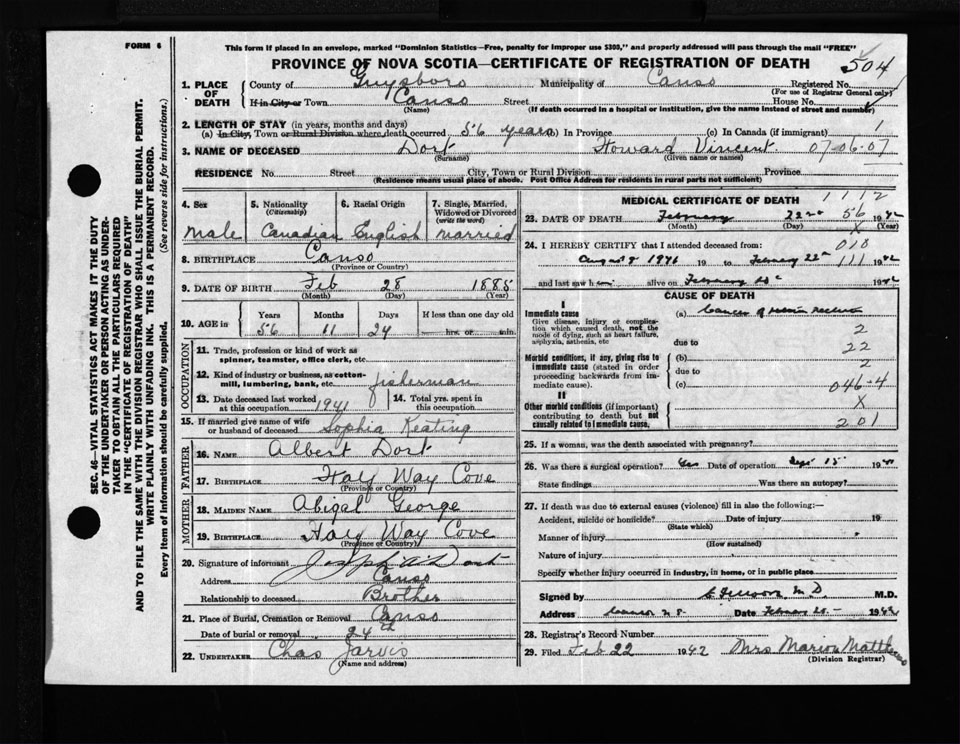 FORM 6
This form if placed in an envelope, marked "Dominion Statistics—Free, penalty for improper use $300," and properly addressed will pass through the mail "FREE"
PROVINCE OF NOVA SCOTIA—CERTIFICATE OF REGISTRATION OF DEATH
504
1. PLACE OF DEATH
County of Guysboro Municipality of Canso Registered No.
(For use of Registrar General only)
If in City or Town Canso Street House No.
(Name) (If death occurred in a hospital or institution, give the name instead of street and number)
2. LENGTH OF STAY (in years, months and days)
(a) In City, Town or Rural Division where death occurred 56 years (b) In Province (c) In Canada (if immigrant) 1
3. NAME OF DECEASED Dort Howard Vincent 07-06-07
(Surname) (Given name or names)
RESIDENCE No. Street City, Town or Rural Division Province
(Residence means usual place of abode. Post Office Address for residents in rural parts not sufficient)
SEC. 46—VITAL STATISTICS ACT MAKES IT THE DUTY
OF THE UNDERTAKER OR PERSON ACTING AS UNDER-
TAKER TO OBTAIN ALL THE PARTICULARS REQUIRED
IN THE "CERTIFICATE OF REGISTRATION OF DEATH"
AND TO FILE THE SAME WITH THE DIVISION REGISTRAR WHO SHALL ISSUE THE BURIAL PERMIT.
WRITE PLAINLY WITH UNFADING INK. THIS IS A PERMANENT RECORD.
Every item of information should be carefully supplied. (See reverse side for instructions.)
4. Sex 5. Nationality (Citizenship) 6. Racial Origin 7. Single, Married, Widowed or Divorced (write the word)
Male Canadian English married
8. BIRTHPLACE Canso
(Province or Country)
9. DATE OF BIRTH Feb 28 1885
(Month) (Day) (Year)
10. AGE in Years Months Days If less than one day old
56 11 24 hrs. or min.
OCCUPATION
11. Trade, profession or kind of work as spinner, teamster, office clerk, etc.
12. Kind of industry or business, as cotton-mill, lumbering, bank, etc. fisherman
13. Date deceased last worked at this occupation 1941
14. Total yrs. spent in this occupation
15. If married give name of wife or husband of deceased Sophia Keating
FATHER
16. NAME Albert Dort
17. BIRTHPLACE Half Way Cove
(Province or Country)
MOTHER
18. MAIDEN NAME Abigal George
19. BIRTHPLACE Half Way Cove
(Province or Country)
20. Signature of informant Dort
Address Canso
Relationship to deceased Brother
21. Place of Burial, Cremation or Removal Canso
Date of burial or removal 24th
22. UNDERTAKER Chas Jarvis
(Name and address)
MEDICAL CERTIFICATE OF DEATH 1112
23. DATE OF DEATH February 22nd 56 1942
(Month) (Day) (Year)
X
24. I HEREBY CERTIFY that I attended deceased from: 010
August 19 to February 22nd 111 1942
and last saw h alive on February 1942
CAUSE OF DEATH
I
Immediate cause
Give disease, injury or complication which caused death, not the mode of dying, such as heart failure, asphyxia, asthenia, etc
(a) Cancer of
2
due to 22
Morbid conditions, if any, giving rise to immediate cause (stated in order proceeding backwards from immediate cause).
(b) 2
due to
(c) 046-4
II
Other morbid conditions (if important) contributing to death but not causally related to immediate cause.
X
201
25. If a woman, was the death associated with pregnancy?
26. Was there a surgical operation? Yes Date of operation Sept 15 19
State findings Was there an autopsy?
27. If death was due to external causes (violence) fill in also the following:—
Accident, suicide or homicide? Date of injury 19
(State which)
Manner of injury
(How sustained)
Nature of injury
Specify whether injury occurred in industry, in home, or in public place
Signed by M.D. M.D.
Address Date February 1942
28. Registrar's Record Number
29. Filed Feb 22 1942 Mrs Marion Matthews
(Division Registrar)